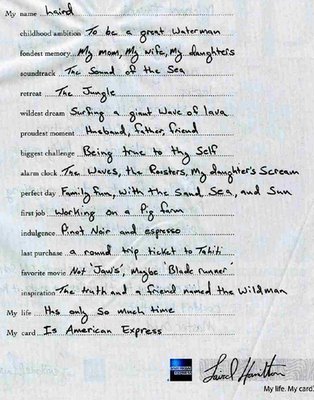 My name Laird
childhood ambition To be a great Waterman
fondest memory My mom, My wife, My daughters
soundtrack The Sound of the Sea
retreat The Jungle
wildest dream Surfing a giant Wave of lava
proudest moment Husband, father, friend
biggest challenge Being true to thy Self
alarm clock The Waves, the Roosters, My daughter's Scream
perfect day Family fun, With the Sand Sea, and Sun
first job Working on a Pig farm
indulgence Pinot Noir and espresso
last purchase a round trip ticket to Tahiti
favorite movie Not 'Jaws', Maybe 'Blade runner'
inspiration The truth and a friend named the Wildman
My life Has only so much time
My card Is American Express
AMERICAN EXPRESS
Laird Hamilton
My life. My card.